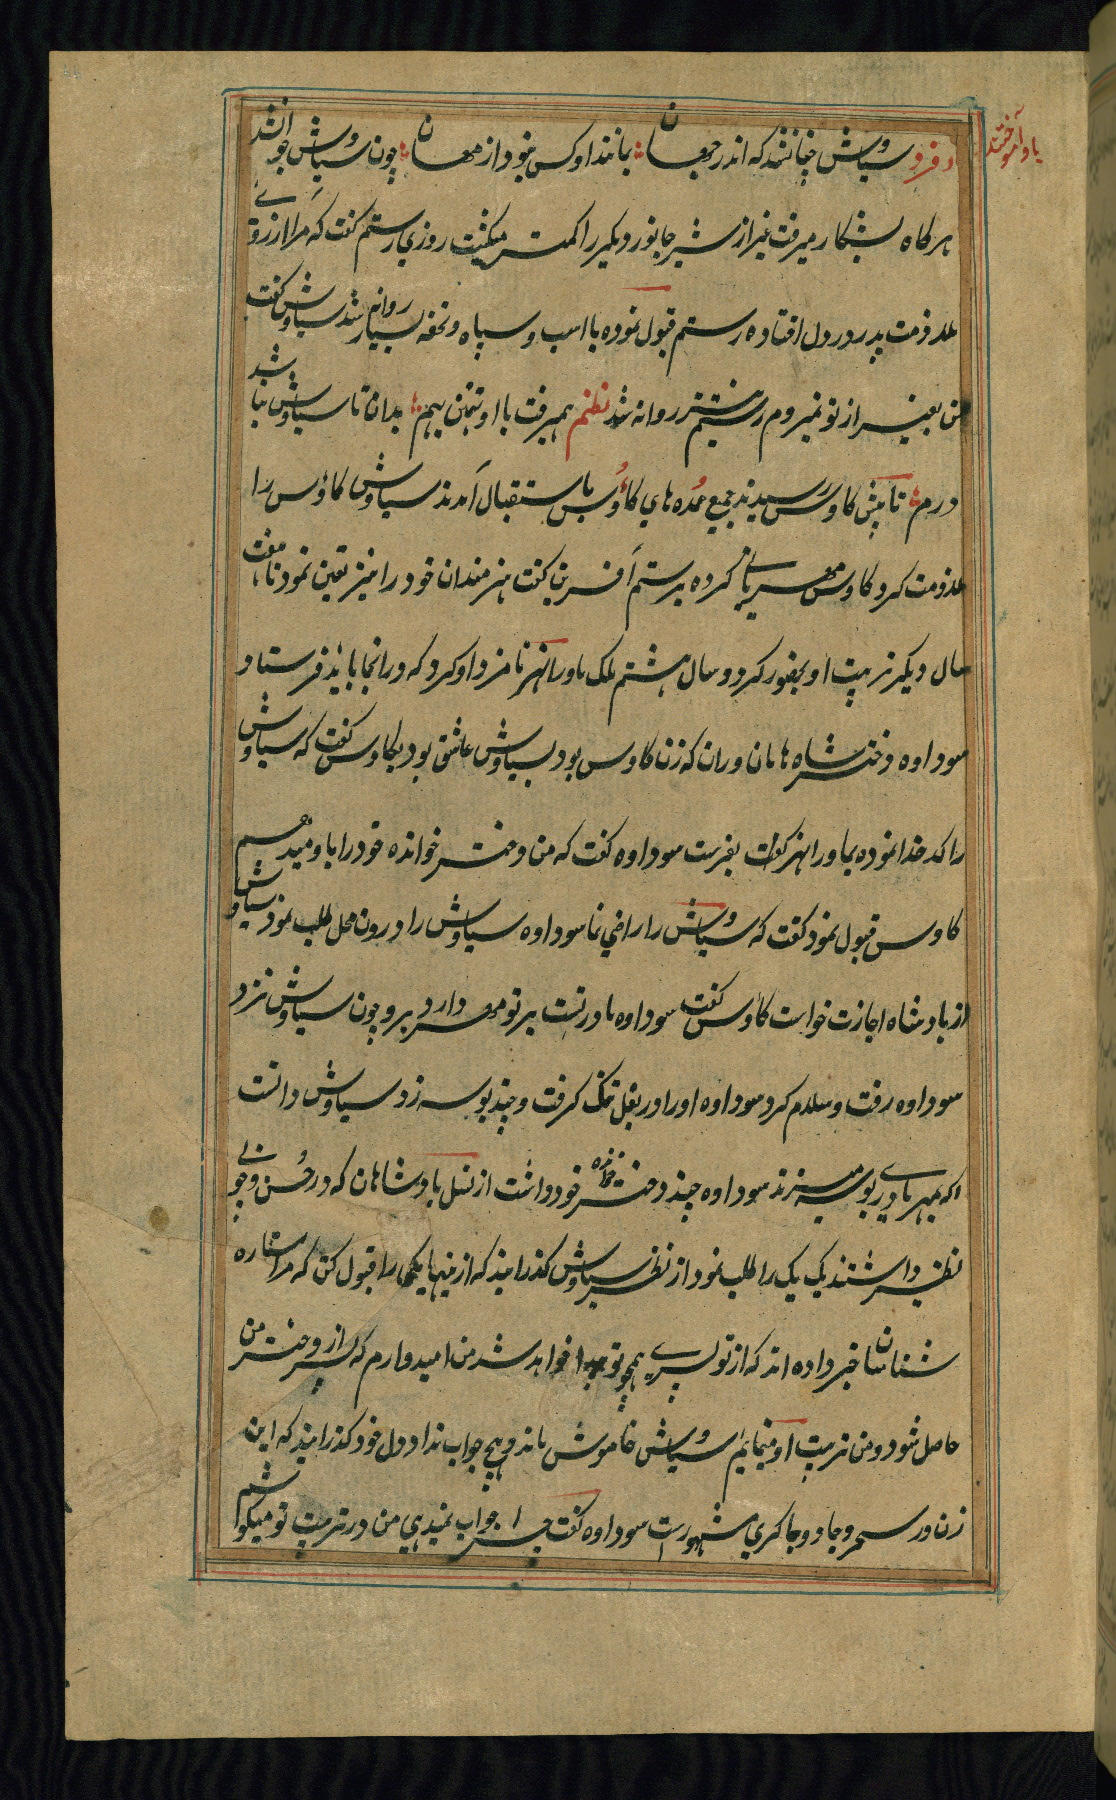 یاد آموختند
و فرو سیاوش چنان شد که اندر جهان بمانند او کس نبود از مهان چون سیاوش جوان شد
هرگاه بشکار میرفت غیر از شیر جانور دیگر را کمتر میکشت روزی برستم گفت که مرا آرزوئی
ملازمت پدر در دل افتاده رستم قبول نموده با اسب و سپاه و تحفه بسیار روانه شد سیاوش گفت
من بغیر از تو نمیروم رستم نیز روانه شد نظم همیرفت با او تهمتن بهم بدان تا سیاوش نباشد
درم تا پیش کاوس رسیدند جمیع عمده های کاؤس باستقبال آمدند سیاوش کاؤس را
ملازمت کرد کاوس مهربانی کرده برستم آفرین گفت هنرمندان خود را نیز تعین نمود تا هفت
سال دیگر تربیت او بحضور کرد و سال هشتم ملک ماورالنهر نامزد او کرد که در آنجا باید فرستاد
سوداوه دختر شاه هاماوران که زن کاوس بود بسیاوش عاشق بود بکاوس گفت که سیاوش
را کدخدا نموده بماورالنهر بفرست سوداوه گفت که من دختر خوانده خود را باو میدهم
کاوس قبول نمود گفت که سیاوش را راضی نما سوداوه سیاوش را درون محل طلب نمود سیاوش
از بادشاه اجازت خواست کاؤس گفت سوداوه مادر تست بر تو مهر دارد برو چون سیاوش نزد
سوداوه رفت و سلام کرد سوداوه او را در بغل تنگ گرفت و چند بوسه زد سیاوش دانست
که بمهر مادری بوسه میزند سوداوه چند دختر خوانده خود داشت از نسل بادشاهان که در حسن و خوبی
نظیر داشتند یک یک را طلب نمود از نظر سیاوش گذرانید که ازینها یکی را قبول کن که مرا ستاره
شناسان خبر داده اند که از تو پسری همچو تو پیدا خواهد شد من امیدوارم که پسر از دختر من
حاصل شود و من تربیت او مینمایم سیاوش خاموش ماند و هیچ جواب نداد در دل خود گذرانید که این
زن در سحر و جادو و مشهورست سوداوه گفت چرا جواب نمیدهی من در تربیت تو میکوشم